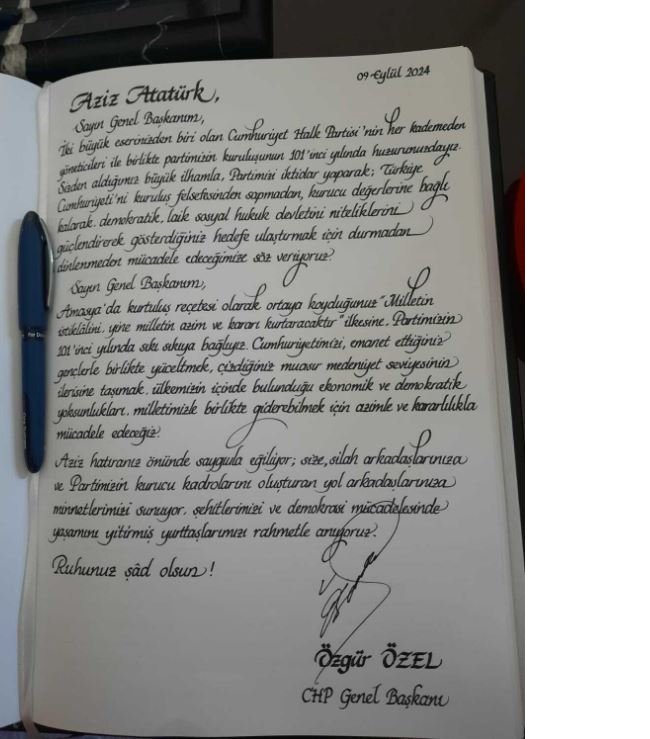 09 Eylül 2024
Aziz Atatürk,
Sayın Genel Başkanım,
İki büyük eserinizden biri olan Cumhuriyet Halk Partisi'nin her kademeden
yöneticileri ile birlikte partimizin kuruluşunun 101'inci yılında huzurunuzdayız.
Sizden aldığımız büyük ilhamla, Partimizi iktidar yaparak; Türkiye
Cumhuriyeti'ni kuruluş felsefesinden sapmadan, kurucu değerlerine bağlı
kalarak, demokratik, laik sosyal hukuk devletini niteliklerini
güçlendirerek gösterdiğiniz hedefe ulaştırmak için durmadan
dinlenmeden mücadele edeceğimize söz veriyoruz.
Sayın Genel Başkanım,
Amasya'da kurtuluş reçetesi olarak ortaya koyduğunuz "Milletin
istiklâlini, yine milletin azim ve kararı kurtaracaktır" ilkesine, Partimizin
101'inci yılında sıkı sıkıya bağlıyız. Cumhuriyetimizi, emanet ettiğiniz
gençlerle birlikte yüceltmek, çizdiğiniz muasır medeniyet seviyesinin
ilerisine taşımak, ülkemizin içinde bulunduğu ekonomik ve demokratik
yoksunlukları, milletimizle birlikte giderebilmek için azimle ve kararlılıkla
mücadele edeceğiz.
Aziz hatıranız önünde saygıyla eğiliyor; size, silah arkadaşlarınıza
ve Partimizin kurucu kadrolarını oluşturan yol arkadaşlarınıza
minnetlerimizi sunuyor, şehitlerimizi ve demokrasi mücadelesinde
yaşamını yitirmiş yurttaşlarımızı rahmetle anıyoruz.
Ruhunuz şâd olsun!
Özgür ÖZEL
CHP Genel Başkanı